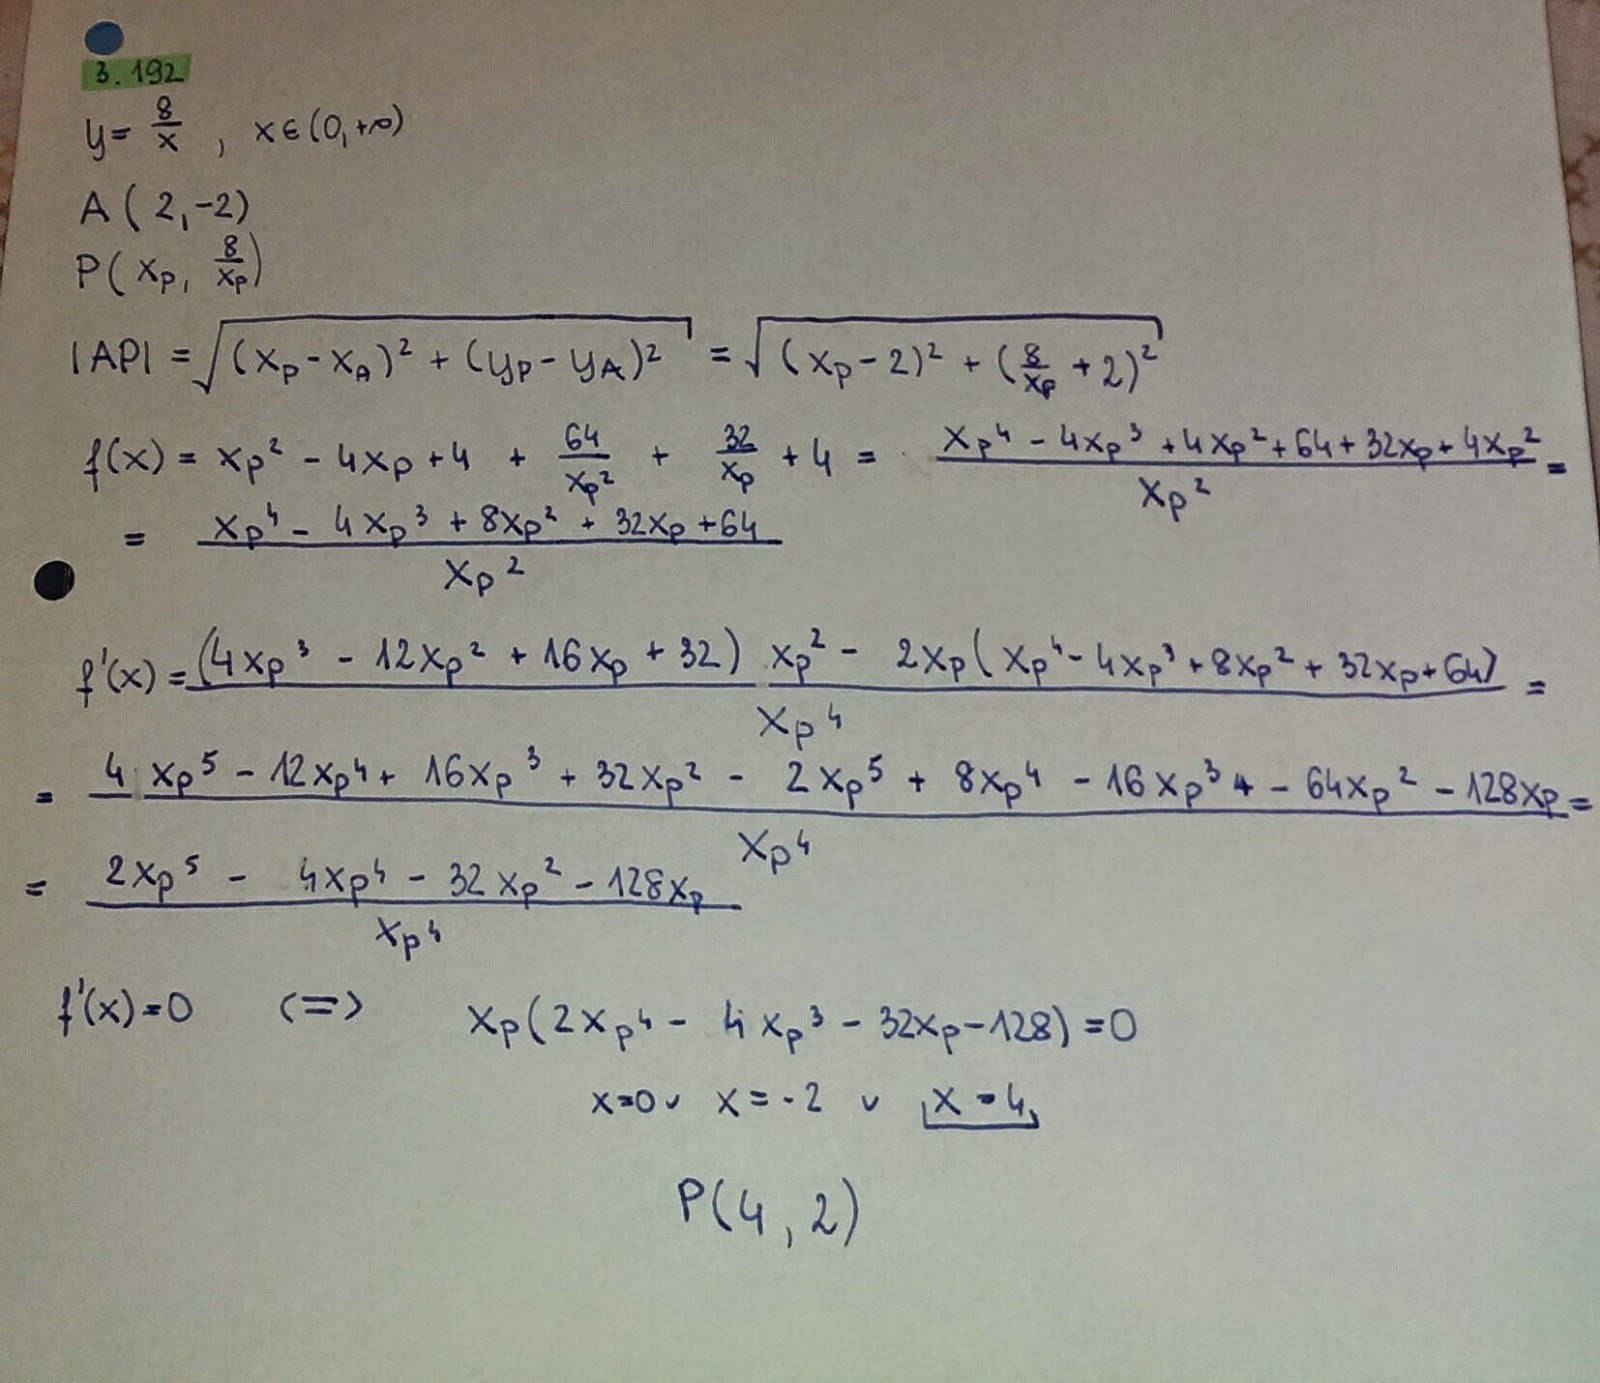 3.192
y = 8/x , x∈(0,+∞)
A(2,-2)
P(xₚ, 8/xₚ)
|AP| = √((xₚ - x_A)² + (yₚ - y_A)²) = √((xₚ - 2)² + (8/xₚ + 2)²)
f(x) = xₚ² - 4xₚ + 4 + 64/xₚ² + 32/xₚ + 4 = (xₚ⁴ - 4xₚ³ + 4xₚ² + 64 + 32xₚ + 4xₚ²)/xₚ² =
= (xₚ⁴ - 4xₚ³ + 8xₚ² + 32xₚ + 64)/xₚ²
f'(x) = ((4xₚ³ - 12xₚ² + 16xₚ + 32) xₚ² - 2xₚ(xₚ⁴ - 4xₚ³ + 8xₚ² + 32xₚ + 64))/xₚ⁴ =
= (4xₚ⁵ - 12xₚ⁴ + 16xₚ³ + 32xₚ² - 2xₚ⁵ + 8xₚ⁴ - 16xₚ³ + - 64xₚ² - 128xₚ)/xₚ⁴ =
= (2xₚ⁵ - 4xₚ⁴ - 32xₚ² - 128xₚ)/xₚ⁴
f'(x) = 0 <=> xₚ(2xₚ⁴ - 4xₚ³ - 32xₚ - 128) = 0
x=0 ∨ x = -2 ∨ x = 4
P(4, 2)